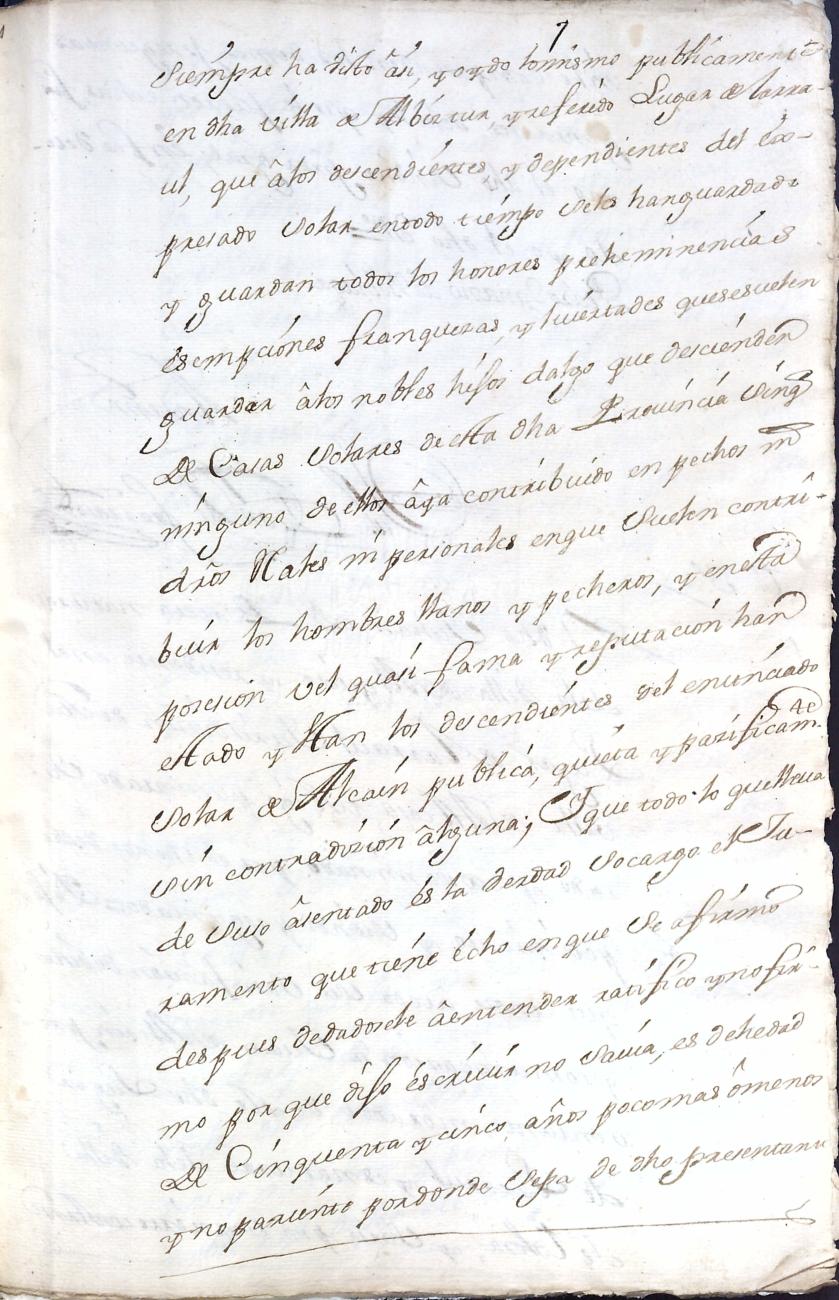 7
siempre ha sido âsi, y oydo lo mismo publicamente
en dha villa de Albistur, y referido Lugar de larra-
ul, que â los descendientes, y dependientes del éx-
presado solar entodo tiémpo seles hanguardado
y guardan todos los honores preheminencias
ésempciónes franquezas, y livértades quesesuelen
guardar âlos nobles hijos dalgo que desciénden
De Casas solares de esta dha Provincia sinq
ninguno de ellos âya contribuido en pechos ni
dros Rales ni personales enque suelen contri-
buir los hombres llanos y pecheros, y enesta
posesion vel quasi fama y reputación han
estado y stan los descendiéntes del enunciado
solar de Alcaín publicá, quiéta y pazificam.te
sin contradizión âlguna; Y que todo lo quelleva
de suso âsentado és la verdad socargo el Ju-
ramento que tiéne écho enque se afirmó
despues dedadosele âentender ratifico ynofir-
mo por que dijo éscrivir no savia, es dehedad
De Cinquenta y cinco años pocomas ômenos
yno pariénte pordonde sepa de dho presentante